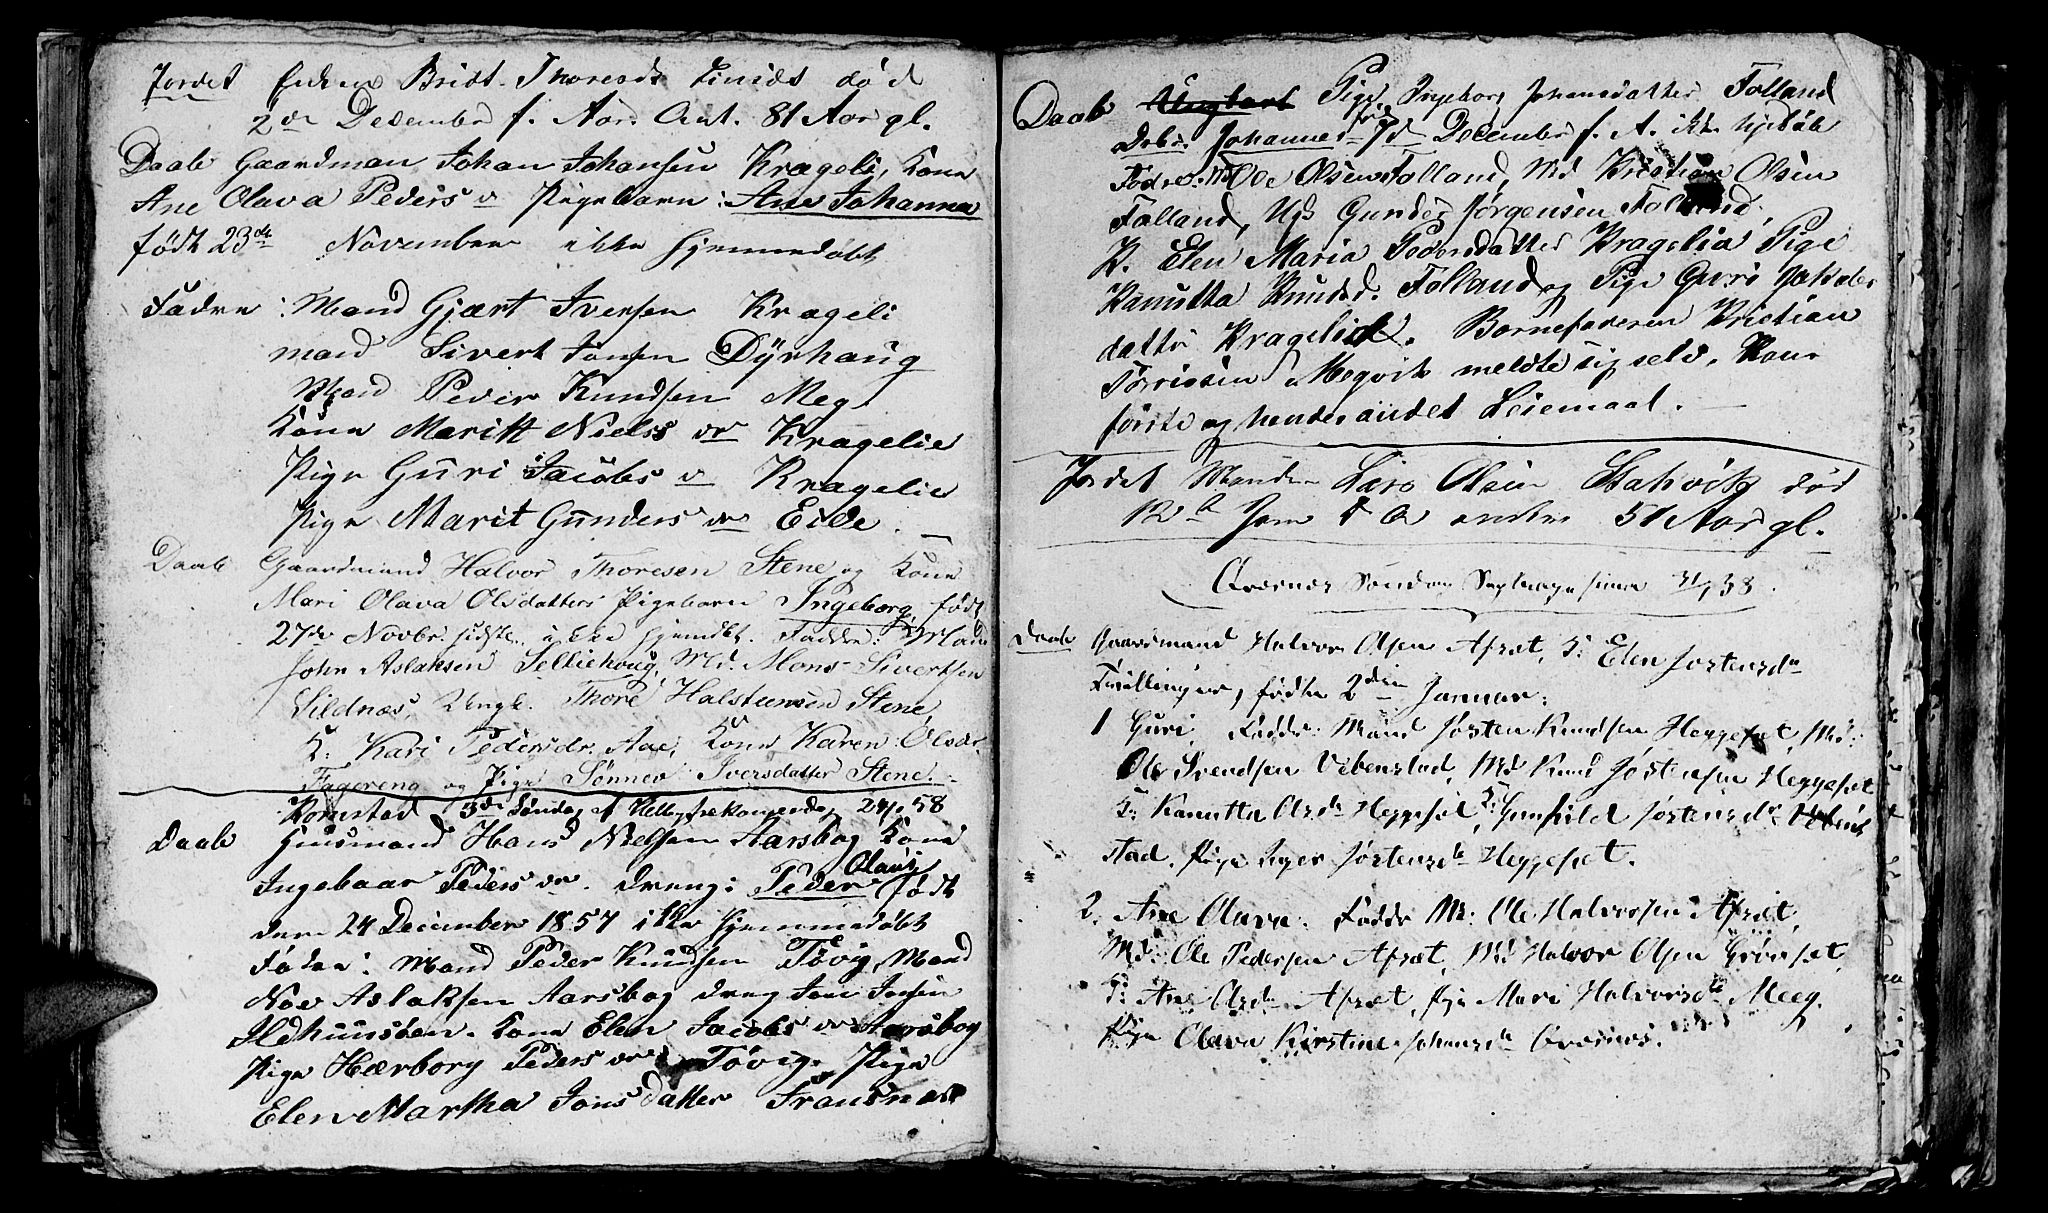 Jordet Enken Bridt. Thoresdr død
2de December f. Aar. Ant. 81 Aar gl.
Daab Gaardman Johan Johansen Kragelie, Kone
Ane Olava Peders dr Pigebarn: Ane Johanna
født 23de November ikke hjemmedøbt
Fadre: Mand Gjært Iversen Krageli
mand Sivert Jonsen Dÿrhaug
Mand Peder Knudsen Meg
Kone Maritt Niels dr Kragelie
Pige Guri Jacobs dr Kragelie
Pige Marit Gunders dr Eide.
Daab Gaardmand Halvor Thoresen Stene og Kone
Mari Olava Olsdatters Pigebarn Ingeborg, født
27de Novbr. sidstl. ikke hjemdbt. Faddre: Mand
John Aslaksen Selliehoug, Md. Mons Sivertsen
Sildnæs, Ungk. Thore Halsteensen Stene,
K. Kari Pedersdr. Aae, Kone Karen Olsdr.
Fagereng og Pige Sønnev Iversdatter Stene.
Kornstad 3de Søndag ef Hellig tre Kongersdag 24/1 58
Daab Huusmand Hans Nielsen Aarsbog Kone
Ingebaar Peders dr. dreng: Peder Olaus født
den 24 December 1857 ikke hjemmedøbt
Fadre: Mand Peder Knudsen Tøvig, Mand
Noe Aslaksen Aarsbog dreng Jon Jonsen
Ildhuusøen. Kone Elen Jacobs dr Aarsbog
Pige Hærborg Peders dr Tøvig. Pige
Elen Martha Jonsdatter
Daab Ungkarl Pige Ingeborg Johansdatter Folland
Johannes fød December f. A. ikke hjdøb
Fadre: Md Ole Olsen Folland, Md Kristian Olsen
Folland, Ugk Gunder Jørgensen Folland,
K. Elen Maria Pedersdatter Kragelie Pige
Kanutta Knudsd. Folland og Pige Guri Jakobs
datter Kragelie. Barnefaderen Kristian
Megvik meldte sig selv. Hans
første og hendes andet Leiemaal.
Jordet Manden Lars Olsen Stakvik død
12te Jan d A anden 51 Aar gl.
Qvernes Søndag Septuagesima 31/1 38.
Daab Gaardmand Halvor Olsen Afsæt, K: Elen Jostensdr
Tvillinger, fødte 2den Januar:
1 Guri, Faddr: Mand Josten Knudsen Heggeset, Md:
Ole Svendsen Vebenstad, Md Knud Jostensen Heggeset
K: Kanutta Olsdr Heggeset, K: Gunhild Jostensdr Veben
stad. Pige Inger Jostensdr Heggeset.
2. Ane Olava. Faddr Md: Ole Halvorsen Afsæt,
Md: Ole Pedersen Afsæt, Md Halvor Olsen Grønset,
K: Ane Olsdr Afsæt, Pige Mari Halvorsdr Meeg,
Pige Olava Kirstine Johansdr Qvernes.